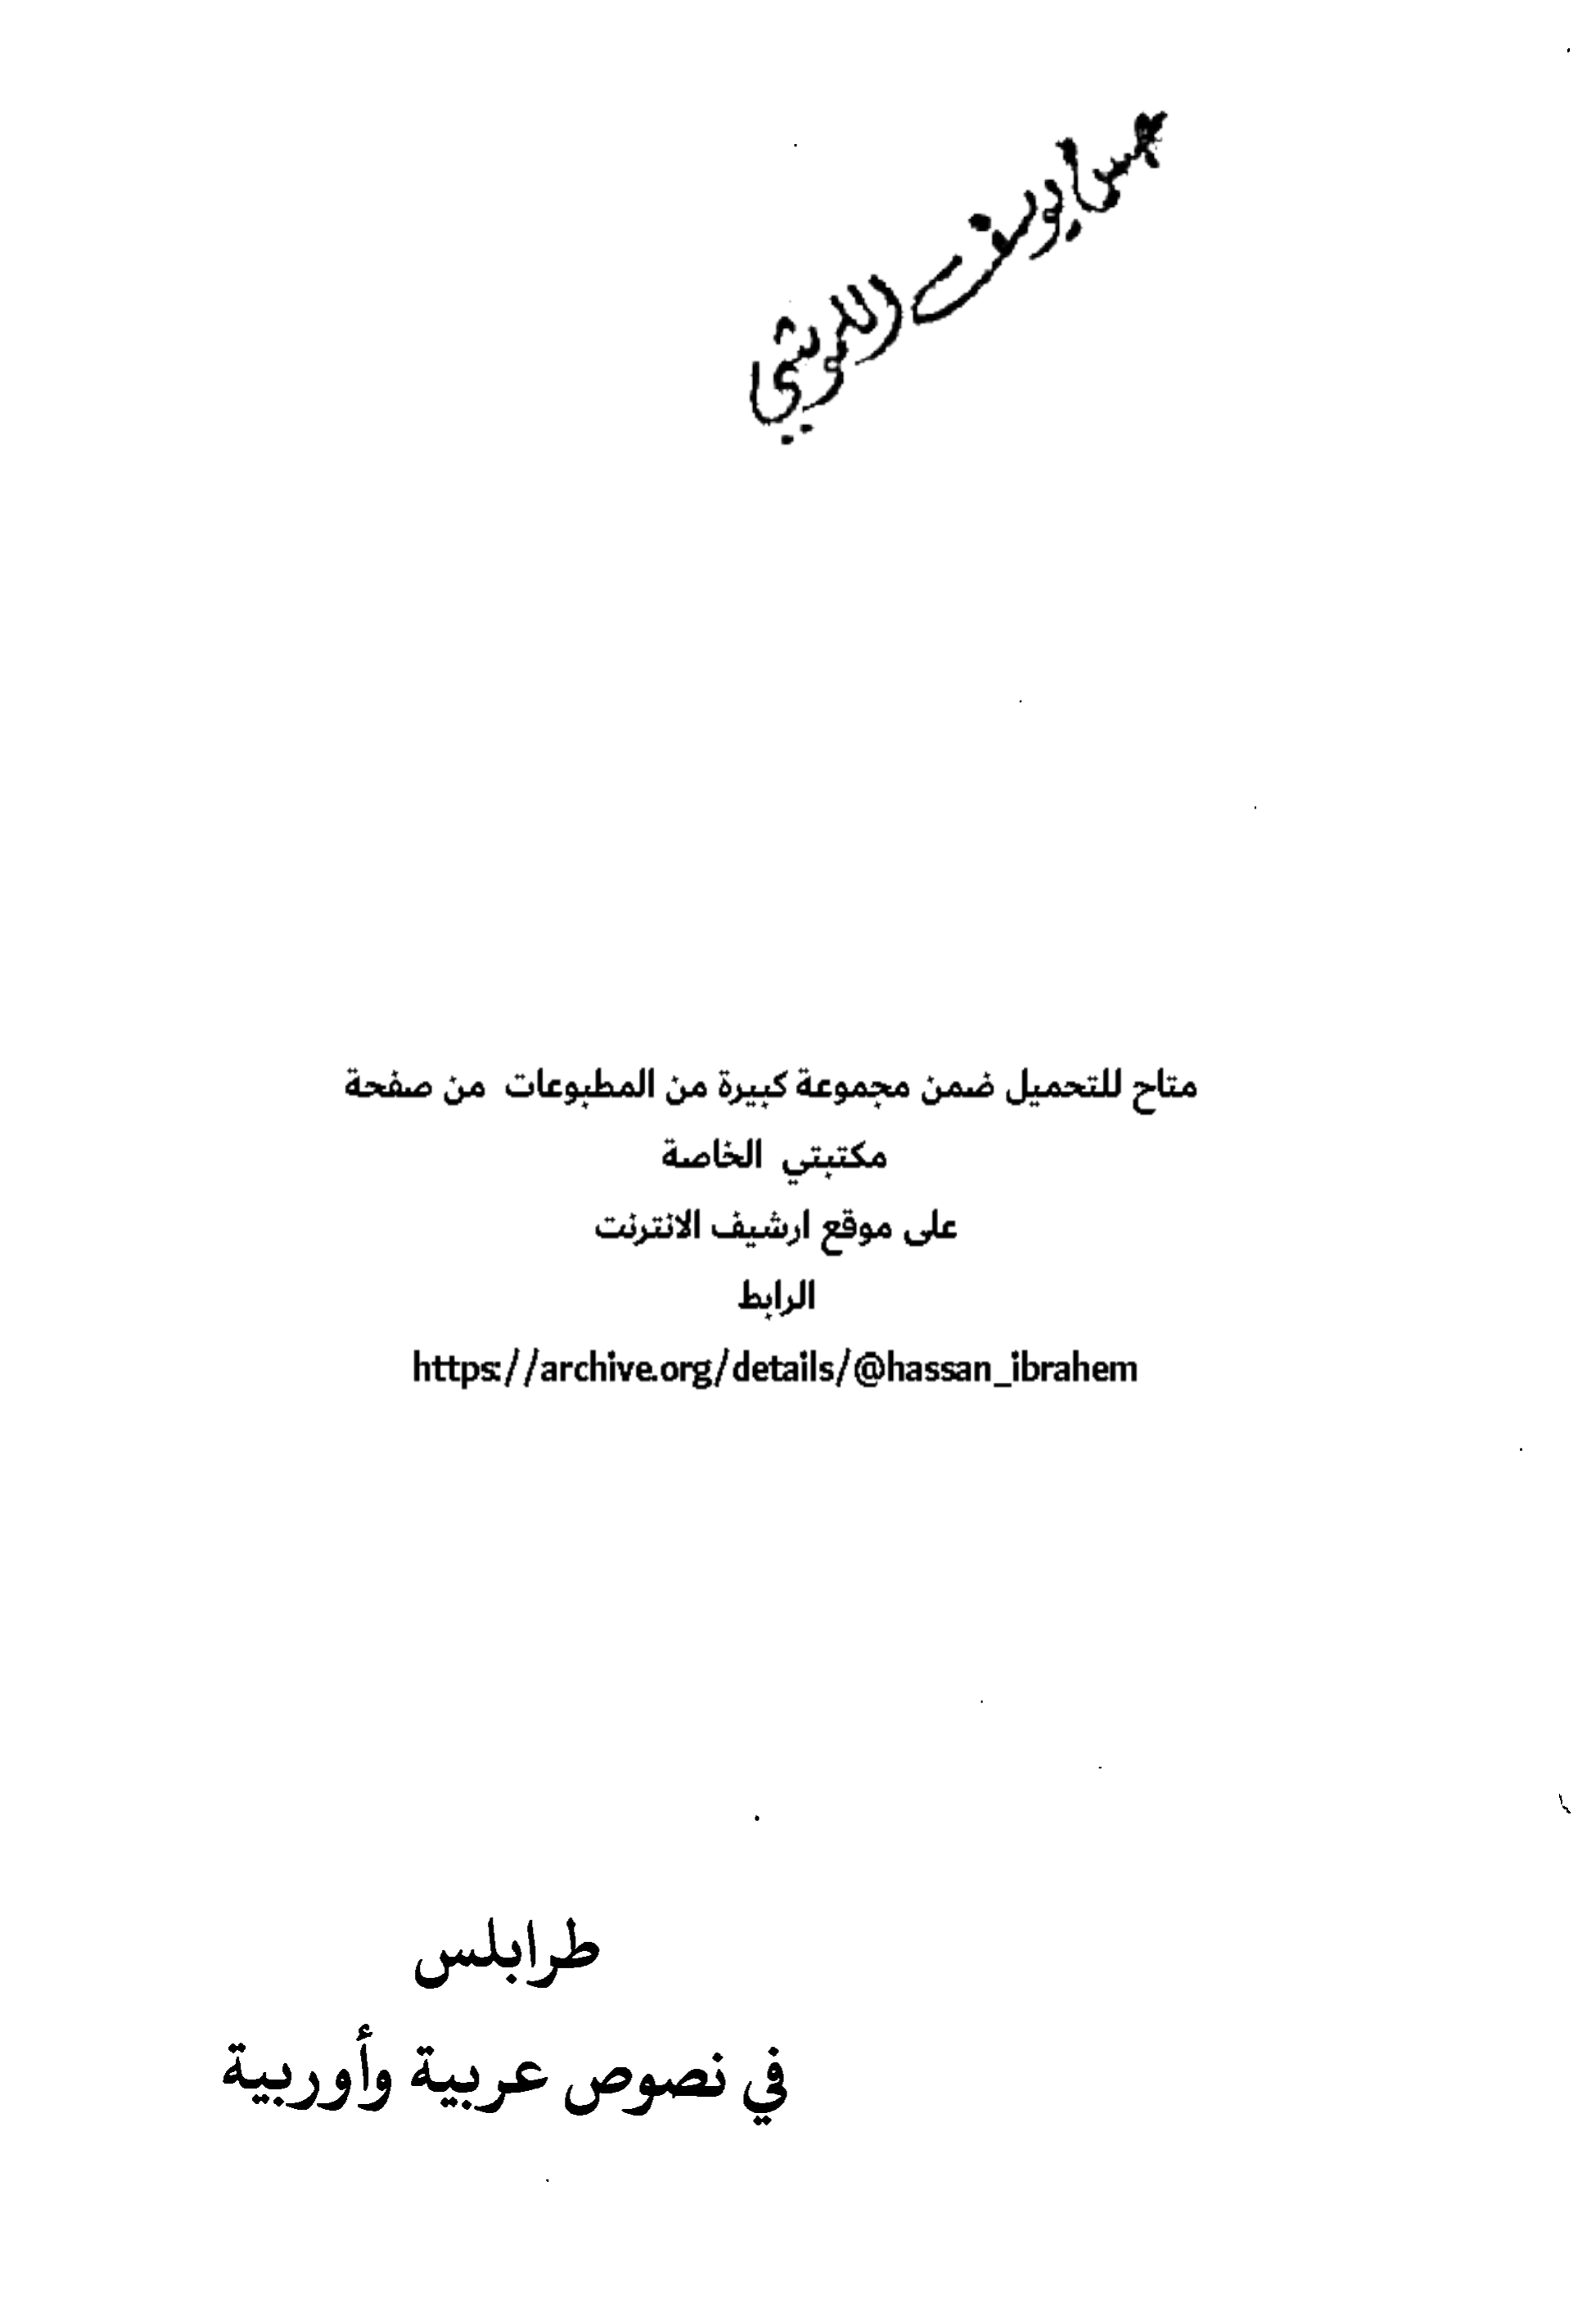 يوسف
متاح للتحميل ضمن مجموعة كبيرة من المطبوعات من صفحة
مكتبتي الخاصة
على موقع ارشيف الانترنت
الرابط
https://archive.org/details/@hassan_ibrahem
طرابلس
في نصوص عربية وأوربية